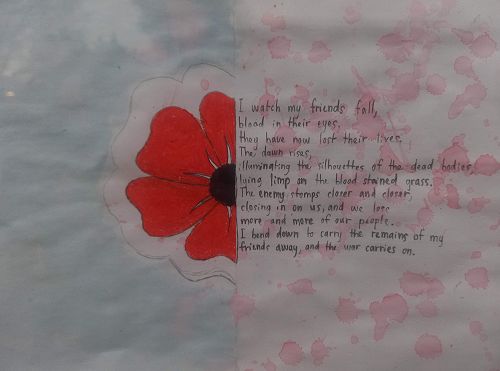 I watch my friends fall,
blood in their eyes,
they have now lost their lives.
The dawn rises,
illuminating the silhouettes of the dead bodies,
lying limp on the blood stained grass.
The enemy stomps closer and closer,
closing in on us, and we lose
more and more of our people.
I bend down to carry the remains of my
friends away, and the war carries on.